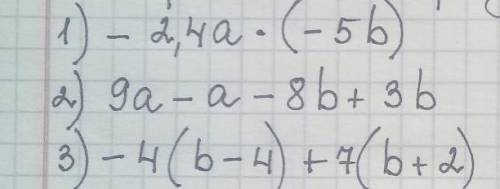 1) - 2,4a · (-5b)
2) 9a - a - 8b + 3b
3) - 4(b - 4) + 7(b + 2)